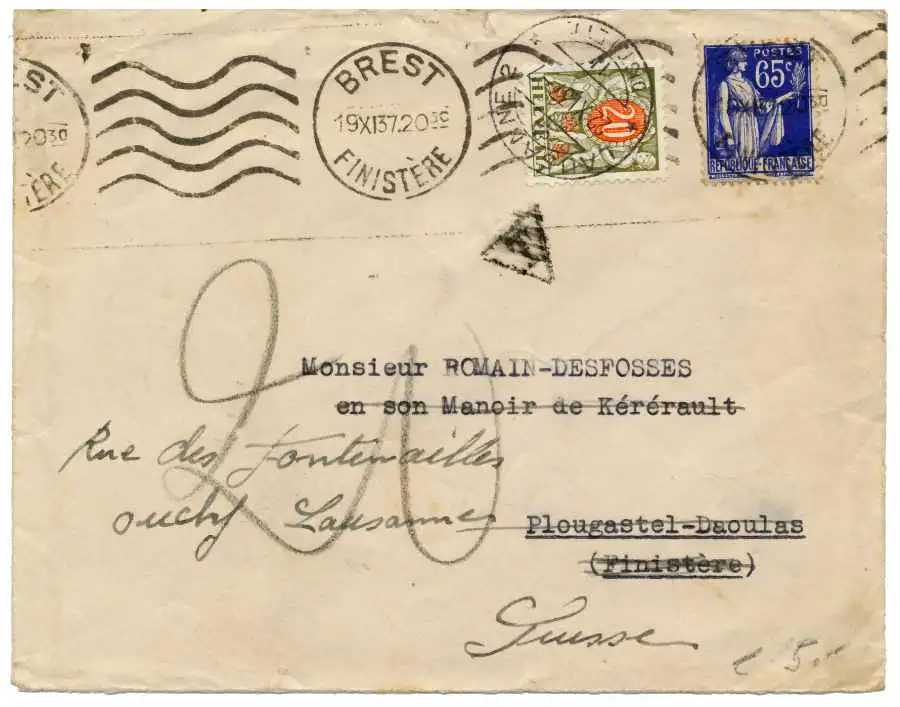 BREST
19XI37.20 30
FINISTÈRE
HELVETIA
20
POSTES
65c
RÉPUBLIQUE-FRANÇAISE
Monsieur ROMAIN-DESFOSSES
en son Manoir de Kérérault
20
Rue des Fontenailles
ouchy Lausanne
Plougastel-Daoulas
(Finistère)
Suisse
5.-